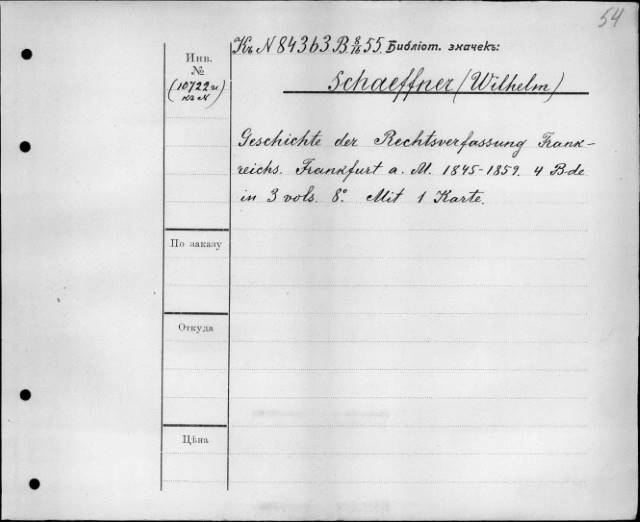 54
Къ N 84363 B 8/16 55. Библіот. значекъ:
Инв.
№
(10722 и
къ N)
Schaeffner (Wilhelm)
Geschichte der Rechtsverfassung Frank-
reichs. Frankfurt a. M. 1845-1859. 4 Bde
in 3 vols. 8º. Mit 1 Karte.
По заказу
Откуда
Цѣна